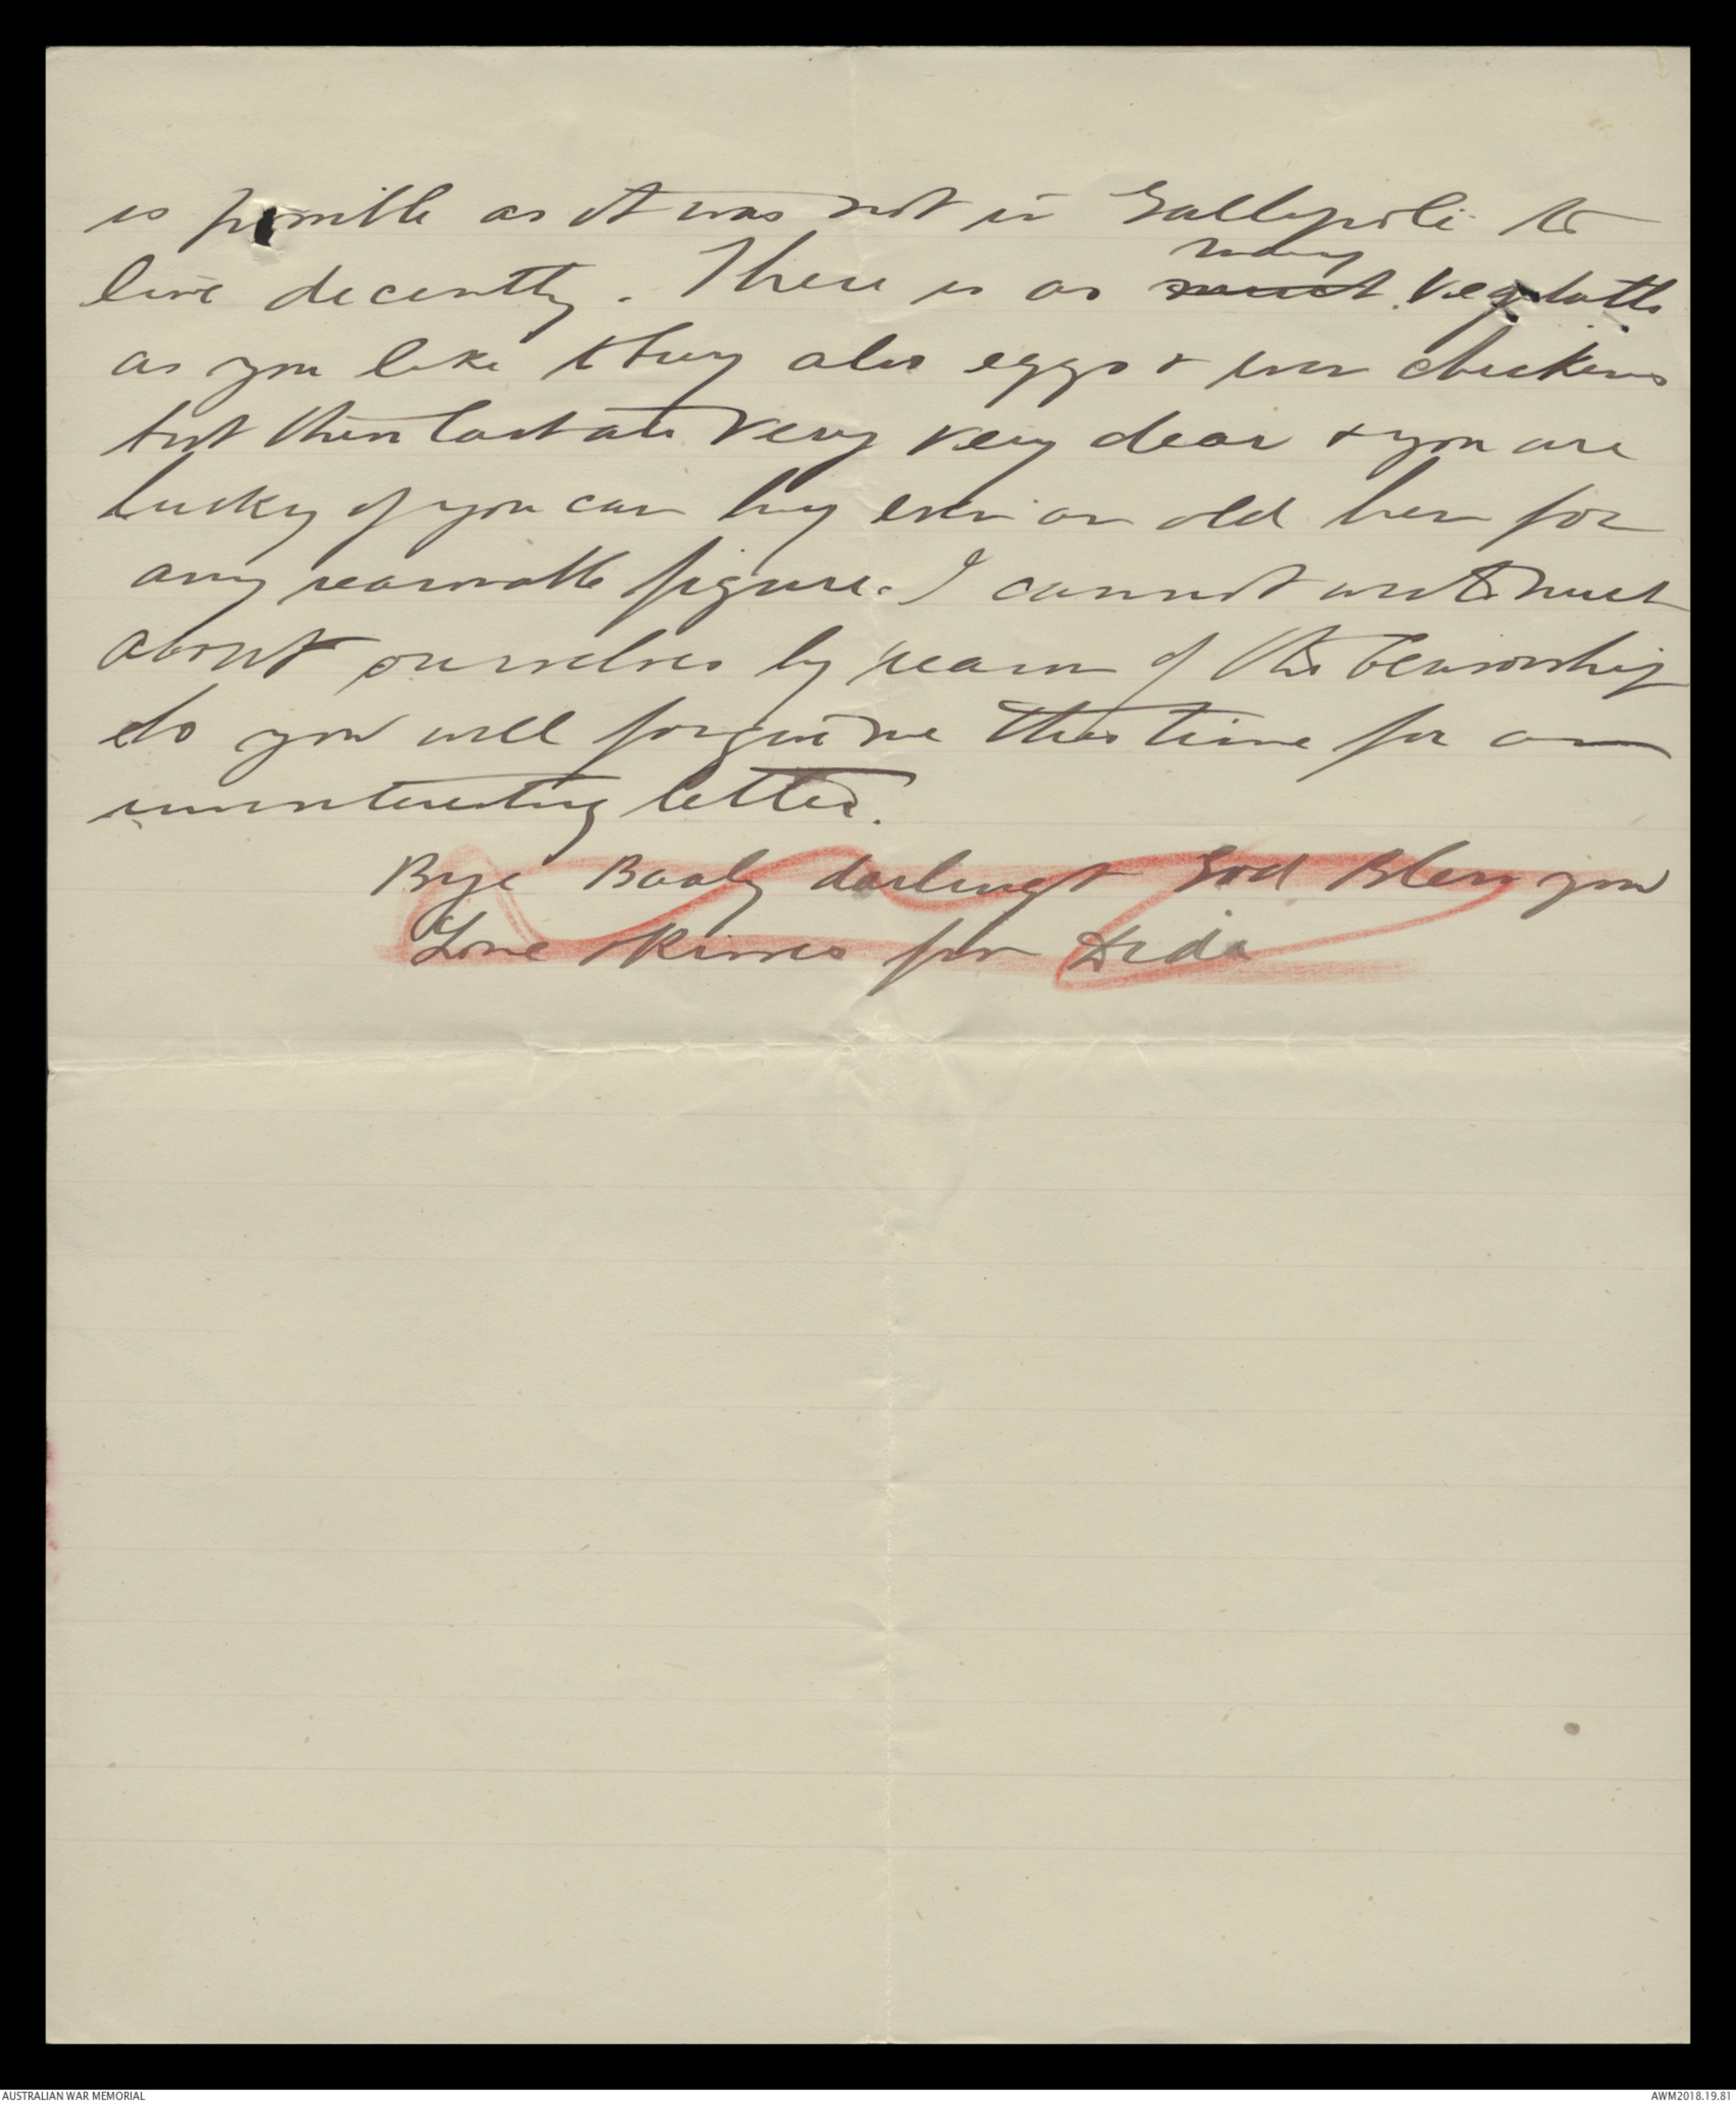 is possible as it was not in Gallipoli to
live decently. There is as much many vegetables
as you like to buy also eggs & even chickens
but these last are very very dear & you are
lucky if you can buy even an old hen for
any reasonable figure. I cannot write much
about ourselves by reason of the Censorship
so you will forgive me this time for an
uninteresting letter.
Bye Baaly darling & God Bless you
Love & Kisses for Dida
AUSTRALIAN WAR MEMORIAL
AWM2018.19.81